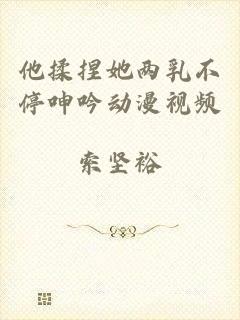 他揉捏她两乳不
停呻吟动漫视频
索坚裕